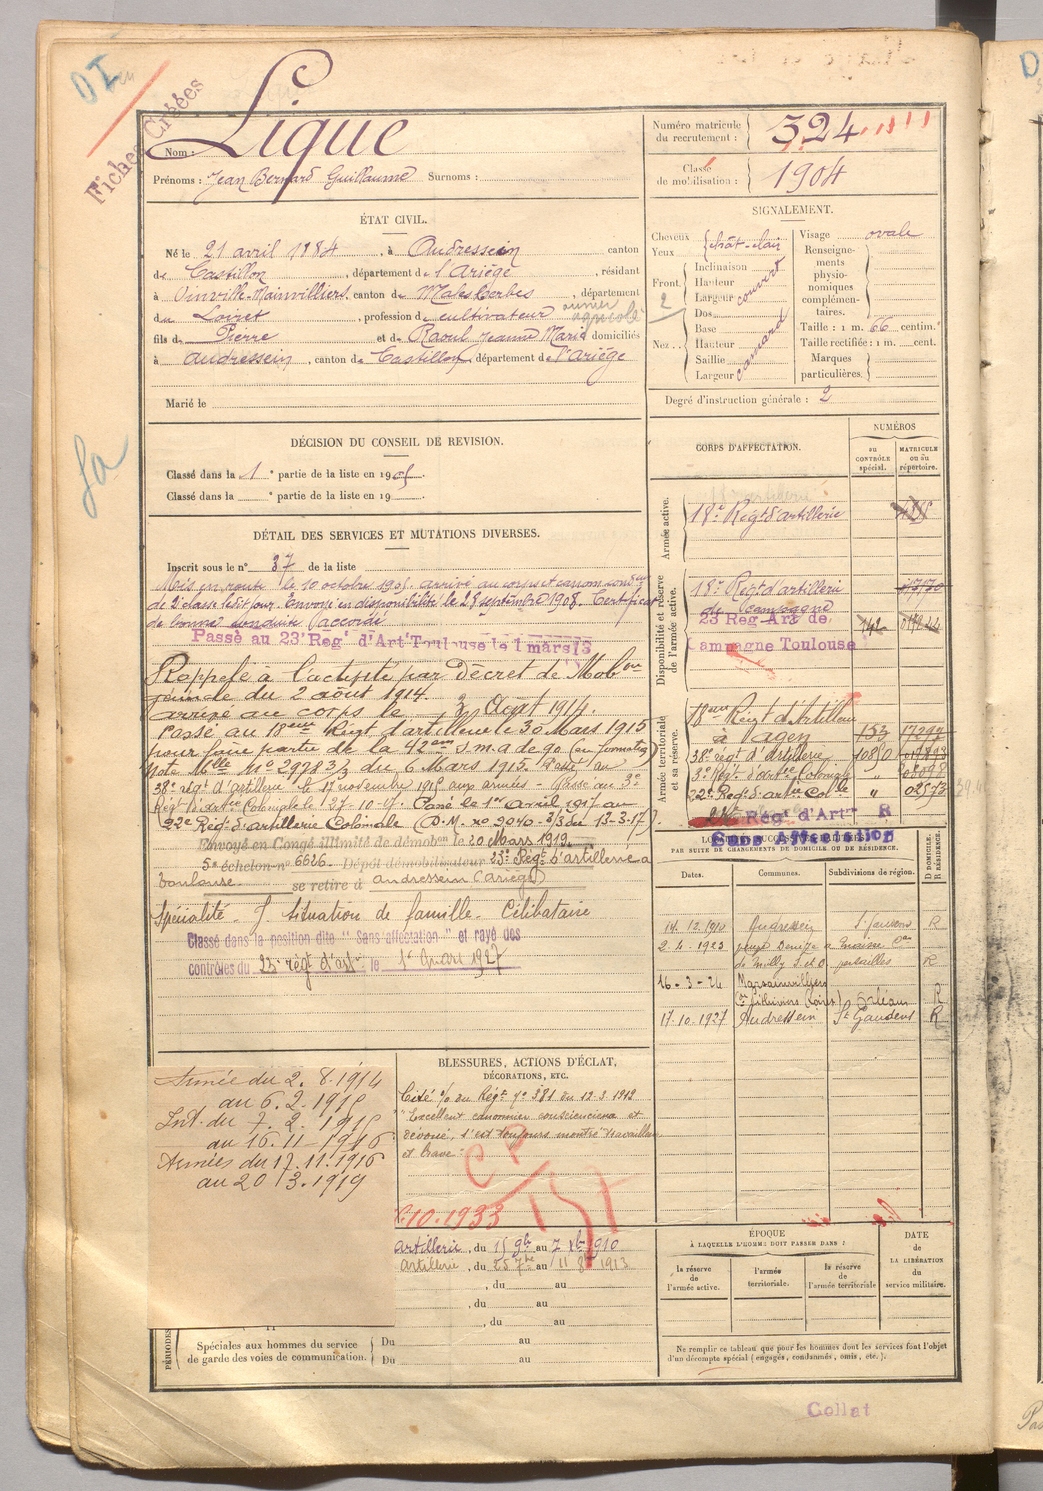 OI
Fiches Créées
Nom : Lique
Prénoms : Jean Bernard Guillaume Surnoms :
Numéro matricule du recrutement : 324
Classe de mobilisation : 1904
ÉTAT CIVIL.
Né le 21 avril 1884, à Audressein canton
de Castillon, département de l'Ariége, résidant
à Oinville-Mainvilliers, canton de Malesherbes, département
ouvrier agricole
du Loiret, profession de cultivateur
fils de Pierre et de Raoul Jeanne Marie domiciliés
à Audressein, canton de Castillon, département de l'Ariége
Marié le
SIGNALEMENT.
Cheveux
Yeux
chât-clair
Front. 2
Inclinaison
Hauteur
Largeur
couvert
Nez
Dos
Base
Hauteur
Saillie
Largeur
camard
Visage ovale
Renseignements physionomiques complémentaires.
Taille : 1 m. 66 centim.
Taille rectifiée : 1 m. cent.
Marques particulières.
Degré d'instruction générale : 2
DÉCISION DU CONSEIL DE REVISION.
Classé dans la 1e partie de la liste en 1905.
Classé dans la e partie de la liste en 19
DÉTAIL DES SERVICES ET MUTATIONS DIVERSES.
Inscrit sous le n° 37 de la liste
Mis en route le 10 octobre 1905. arrivé au corps et canonn. cond.
de 2e classe ledit jour. Envoyé en disponibilité le 28 septembre 1908. Certificat
de bonne conduite accordé.
Passé au 23e Regt d'Art Toulouse le 1 mars 13
Rappelé à l'activité par Décret de Mobon
générale du 2 août 1914.
arrivé au corps le 3 Août 1914.
Passé au 18eme Régt d'artillerie le 30 Mars 1915
pour faire partie de la 42eme s.m.a de 90 (en formation)
Note Mlle No 29783 3/3 du 6 Mars 1915. Passé au
38e régt d'artillerie le 17 novembre 1915 aux armées - Passé au 3e
Régt d'Artie Coloniale le 27-10-15. Passé le 1er Avril 1917 au
22e Régt d'artillerie Coloniale (D.M. no 2040-3/3 du 13-3-17).
Envoyé en Congé illimité de démobon le 20 Mars 1919.
5e échelon n° 6626. Dépôt démobilisateur 23e Régt d'artillerie à
Toulouse se retire à Audressein (Ariége)
Spécialité - J. Situation de famille - Célibataire
Classé dans la position dite "Sans affectation" et rayé des
contrôles du 23e régt d'artie le 1er Mars 1927
CORPS D'AFFECTATION.
NUMÉROS
au CONTRÔLE spécial.
MATRICULE ou au répertoire.
Armée active.
18e Régt d'artillerie
Disponibilité et réserve de l'armée active.
18e Régt d'artillerie
de campagne
23 Reg-Art de
Campagne Toulouse
Armée territoriale et sa réserve.
18eme Régt d'Artillerie
à Agen 153
38e régt d'artillerie 1080
3e Régt d'artie Coloniale "
22e Régt d'artie Colle " 02573
Régt d'Artie R
Sans Affectation
PAR SUITE DE CHANGEMENTS DE DOMICILE OU DE RÉSIDENCE.
D. DOMICILE. R. RÉSIDENCE.
Dates. Communes. Subdivisions de région.
14.12.1910 Audressein St Gaudens R
2-4-1923
de Milly S.et O. Versailles R
16-3-24 Marsainvilliers
(con Pithiviers Loiret) Orléans R
17-10-1927 Audressein St Gaudens R
BLESSURES, ACTIONS D'ÉCLAT,
DÉCORATIONS, ETC.
Cité % du Régt n° 381 du 12-3-1919
"Excellent canonnier consciencieux et
dévoué, s'est toujours montré travailleur
et brave"
CP
10.1933
Armée du 2.8.1914
au 6.2.1915
Int. du 7.2.1915
au 16.11-1915
Armées du 17.11.1915
au 20 3.1919
artillerie, du 15 9bre au 7 xbre 1910
artillerie, du au 1913
, du au
, du au
, du au
PÉRIODES
Spéciales aux hommes du service
de garde des voies de communication.
Du au
Du au
ÉPOQUE
À LAQUELLE L'HOMME DOIT PASSER DANS :
la réserve de l'armée active.
l'armée territoriale.
la réserve de l'armée territoriale
DATE de LA LIBÉRATION du service militaire.
Ne remplir ce tableau que pour les hommes dont les services font l'objet
d'un décompte spécial (engagés, condamnés, omis, etc.).
Collat